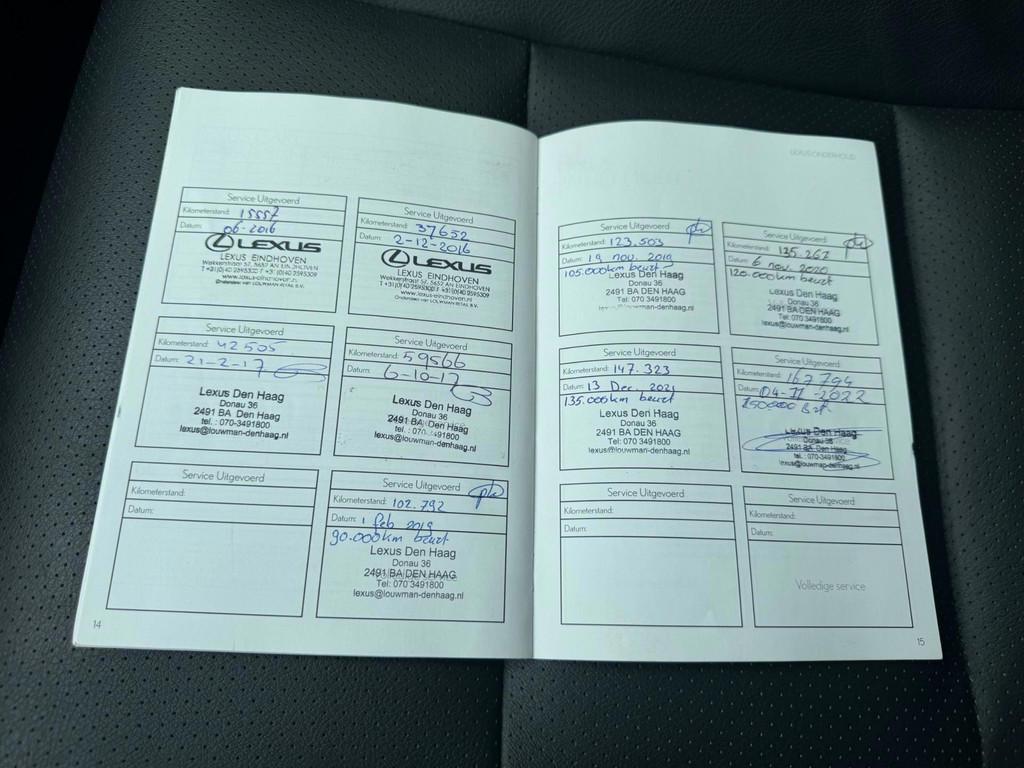 Service Uitgevoerd
Kilometerstand: 15557
Datum: 06-2016
LEXUS
LEXUS EINDHOVEN
www.lexus-eindhoven.nl
Service Uitgevoerd
Kilometerstand: 37652
Datum: 2-12-2016
LEXUS
LEXUS EINDHOVEN
Wekkerstraat 57, 5652 AN EINDHOVEN
www.lexus-eindhoven.nl
Onderdeel van LOUWMAN RETAIL B.V.
Service Uitgevoerd
Kilometerstand: 42505
Datum: 21-2-17
Lexus Den Haag
Donau 36
2491 BA Den Haag
tel. : 070-3491800
lexus@louwman-denhaag.nl
Service Uitgevoerd
Kilometerstand: 59566
Datum: 6-10-17
Lexus Den Haag
Donau 36
2491 BA Den Haag
tel. : 070-3491800
lexus@louwman-denhaag.nl
Service Uitgevoerd
Kilometerstand:
Datum:
Service Uitgevoerd
Kilometerstand: 102.792
Datum: 1 feb 2019
90.000km beurt
Lexus Den Haag
Donau 36
2491 BA DEN HAAG
Tel: 070 3491800
lexus@louwman-denhaag.nl
14
LEXUS ONDERHOUD
Service Uitgevoerd
Kilometerstand: 123.503
Datum: 19 nov. 2019
105.000km beurt
Lexus Den Haag
Donau 36
2491 BA DEN HAAG
Tel: 070 3491800
Service Uitgevoerd
Kilometerstand: 135.267
Datum: 6 nov. 2020
120.000km beurt
Lexus Den Haag
Donau 36
2491 BA DEN HAAG
Tel: 070 3491800
lexus@louwman-denhaag.nl
Service Uitgevoerd
Kilometerstand: 147.323
Datum: 13 Dec. 2021
135.000km beurt
Lexus Den Haag
Donau 36
2491 BA DEN HAAG
Tel: 070 3491800
lexus@louwman-denhaag.nl
Service Uitgevoerd
Kilometerstand: 167794
Datum: 04-11-2022
150000 Brt
Lexus Den Haag
Donau 36
2491 BA Den Haag
tel. : 070-3491800
lexus@louwman-denhaag.nl
Service Uitgevoerd
Kilometerstand:
Datum:
Service Uitgevoerd
Kilometerstand:
Datum:
Volledige service
15